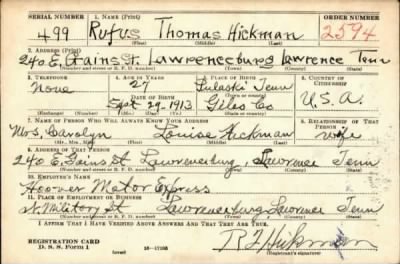 SERIAL NUMBER 1. NAME (Print) ORDER NUMBER
499 Rufus Thomas Hickman 2594
(First) (Middle) (Last)
2. ADDRESS (Print)
240 E. Gains St. Lawrenceburg Lawrence Tenn
(Number and street or R. F. D. number) (Town) (County) (State)
3. TELEPHONE 4. AGE IN YEARS 5. PLACE OF BIRTH 6. COUNTRY OF CITIZENSHIP
None 27 Pulaski Tenn
DATE OF BIRTH (Town or county)
Sept 29-1913 Giles Co U.S.A.
(Exchange) (Number) (Mo.) (Day) (Yr.) (State or country)
7. NAME OF PERSON WHO WILL ALWAYS KNOW YOUR ADDRESS 8. RELATIONSHIP OF THAT PERSON
Mrs. Carolyn Louise Hickman wife
(Mr., Mrs., Miss) (First) (Middle) (Last)
9. ADDRESS OF THAT PERSON
240 E. Gains St Lawrenceburg, Lawrence Tenn
(Number and street or R. F. D. number) (Town) (County) (State)
10. EMPLOYER'S NAME
Hoover Motor Express
11. PLACE OF EMPLOYMENT OR BUSINESS
N. Military St Lawrenceburg Lawrence Tenn
(Number and street or R. F. D. number) (Town) (County) (State)
I AFFIRM THAT I HAVE VERIFIED ABOVE ANSWERS AND THAT THEY ARE TRUE.
REGISTRATION CARD
D. S. S. Form 1 (over) 16-17105 R T Hickman
(Registrant's signature)